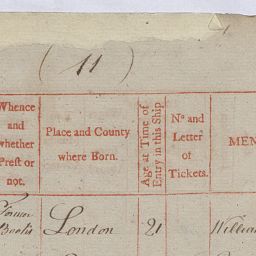 ( 11 )
Whence
and
whether
Prest or
not.
Place and County
where Born.
Age at Time of
Entry in this Ship
Nº and
Letter
of
Tickets.
MEN
Former
Books
London
21
William